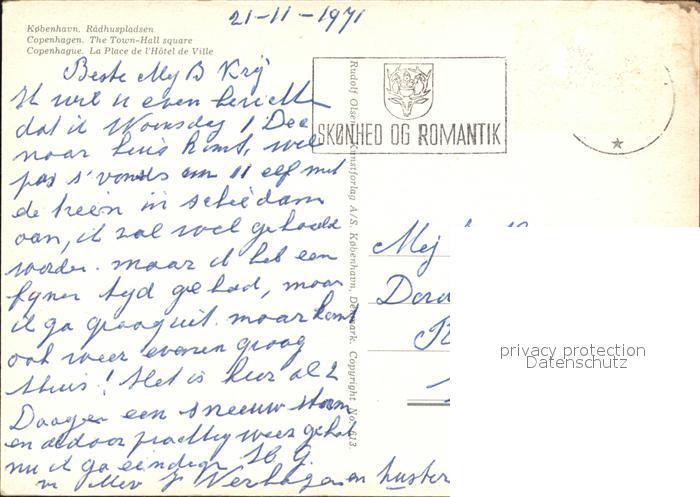 21-11-1971
København. Rådhuspladsen
Copenhagen. The Town-Hall square
Copenhague. La Place de l'Hôtel de Ville
Beste Mej B Krij
Ik wil u even berichten
dat ik Woensdag 1 Dec
naar huis komt, wel
pas s'vonds om 11 elf met
de trein in schiedam
aan, ik zal wel gehaald
worden. maar ik heb een
fyner tyd gehad, maar
ik ga graag uit. maar kom
ook weer evenen graag
thuis! Het is hier al 2
Daagen een sneeuw storm
en daardoor prachtig weer gehad
nu ik ga eindige H G.
v Mev J Verhagen en zuster
SKØNHED OG ROMANTIK
Rudolf Olsens Kunstforlag A/S. København, Denmark. Copyright No. 613
Mej
privacy protection
Datenschutz